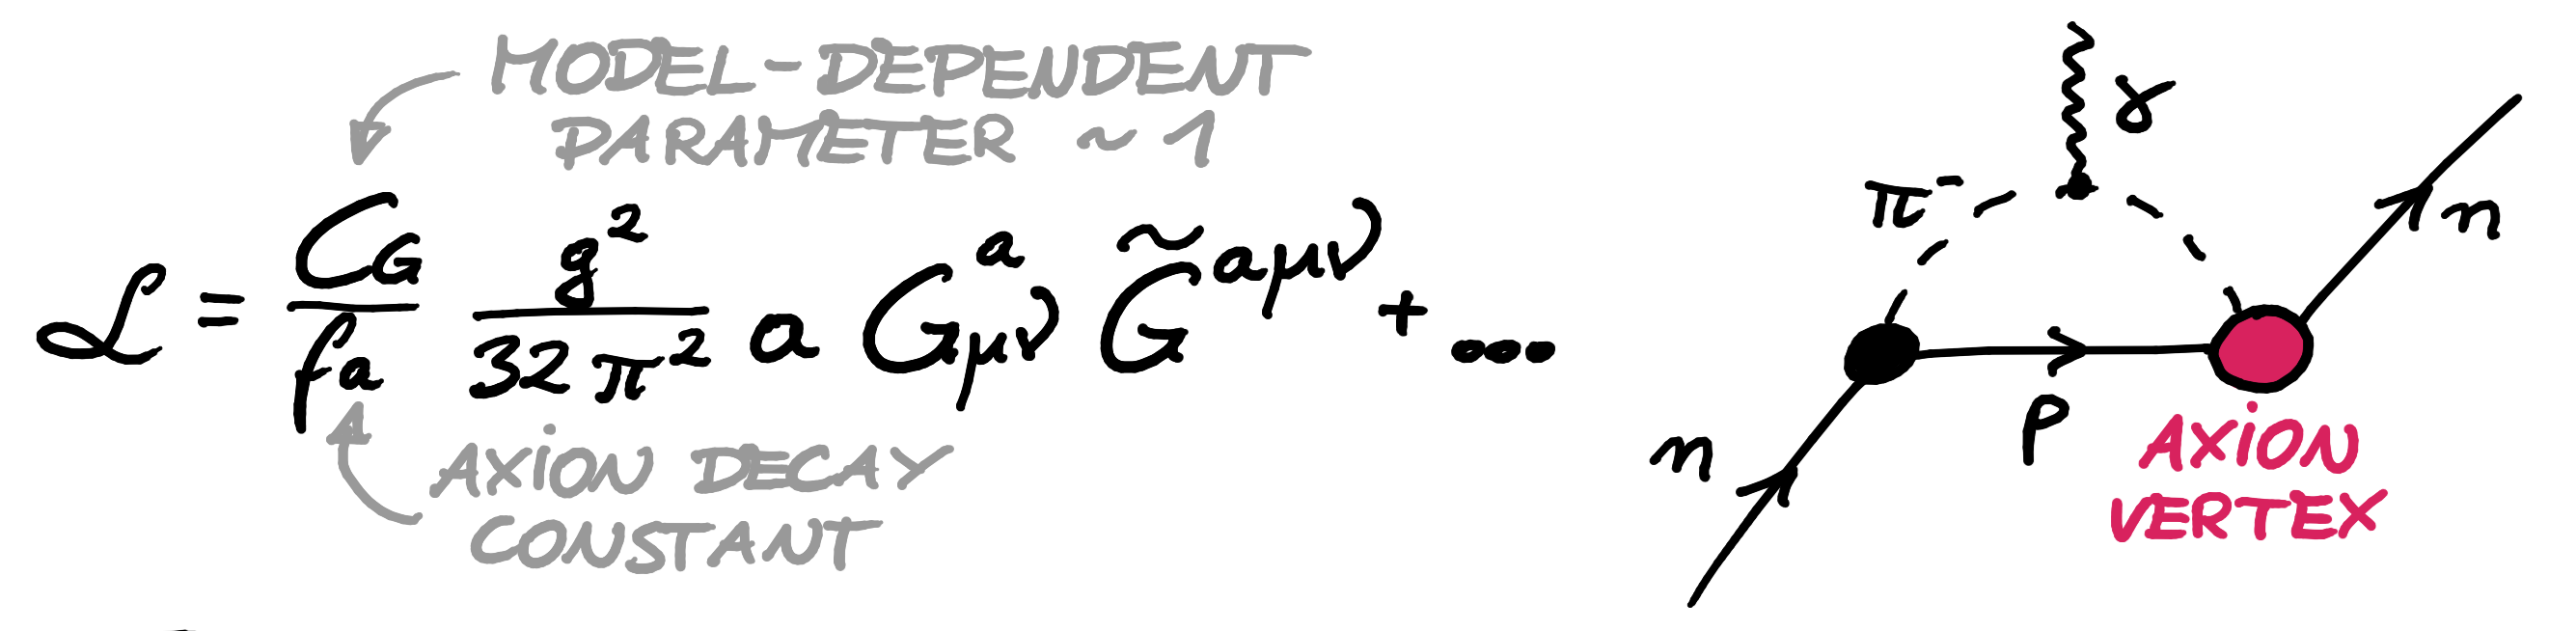 MODEL-DEPENDENT
PARAMETER ~ 1
ℒ = C_G/f_a g²/32π² a G^a_μν G̃^aμν + ...
AXION DECAY
CONSTANT
γ
π⁻
n
p
n
AXION
VERTEX